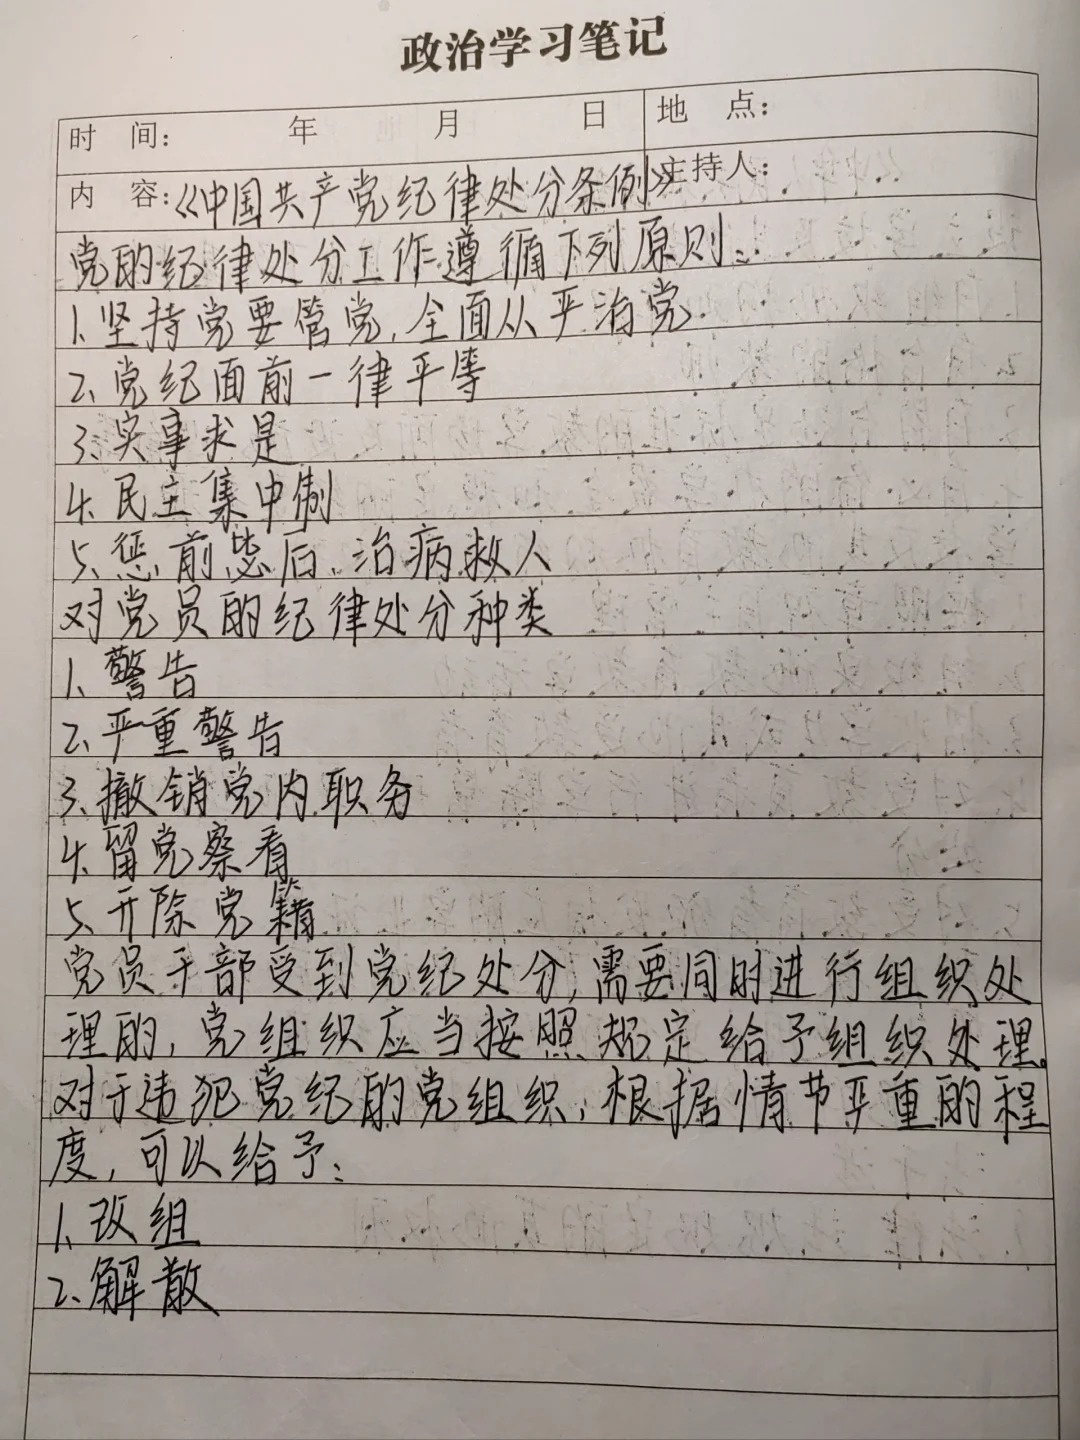 政治学习笔记
时 间: 年 月 日 地 点:
内 容:《中国共产党纪律处分条例》主持人:
党的纪律处分工作遵循下列原则:
1.坚持党要管党,全面从严治党
2、党纪面前一律平等
3、实事求是
4、民主集中制
5、惩前毖后、治病救人
对党员的纪律处分种类
1、警告
2、严重警告
3、撤销党内职务
4、留党察看
5、开除党籍
党员干部受到党纪处分,需要同时进行组织处
理的,党组织应当按照规定给予组织处理。
对于违犯党纪的党组织,根据情节严重的程
度,可以给予:
1、改组
2、解散